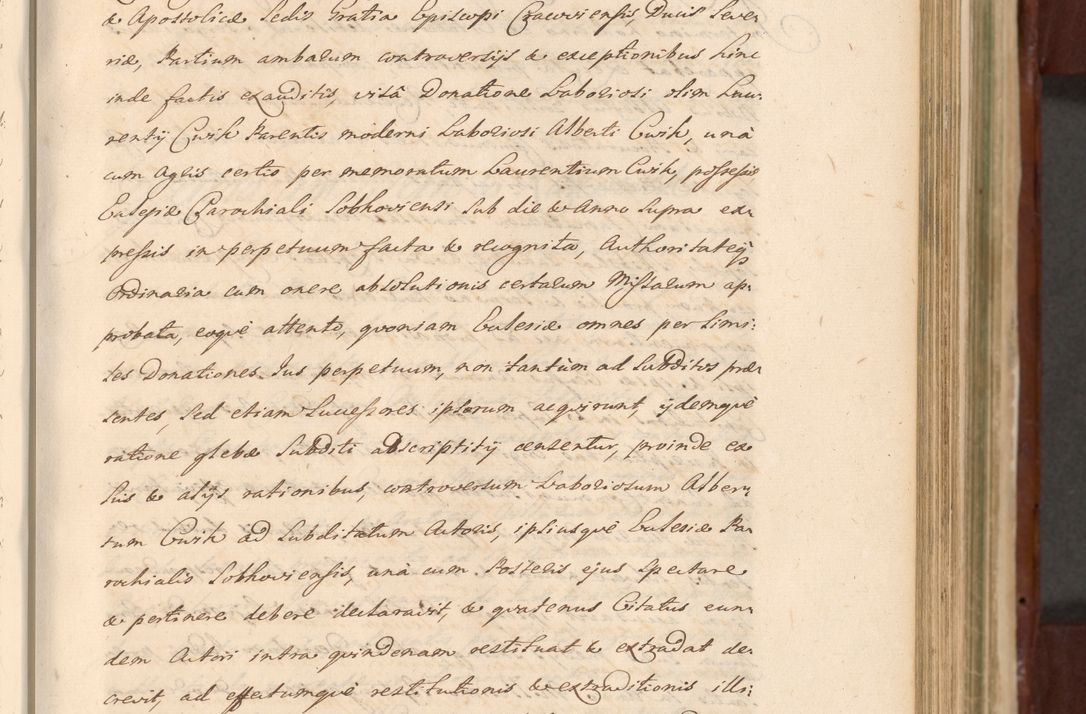 & Apostolicæ Sedis Gratia Episcopi Cracoviensis, Ducis Seve-
riæ, Partium ambarum controversijs & exceptionibus hinc
inde factis exauditis, visâ Donatione Laboriosi olim Lau:
rentij Cwik Parentis moderni Laboriosi Alberti Cwik, unà
cum Agris certis per memoratum Laurentium Cwik, possessis
Eclesiæ Parochiali Sobkoviensi sub die & Anno supra ex-
pressis in perpetuum facta & recognita, Authoritateqz
Ordinaria cum onere absolutionis certarum Missarum ap-
probata, eoquè attento, quoniam Eclesiæ omnes per simi:
les Donationes Jus perpetuum, non tantùm ad Subditos præ-
sentes, sed etiam Successores ipsorum acquirunt, ijdemquè
ratione glebæ Subditi adscriptitij censentur, proinde ex
his & alijs rationibus, controversum Laboriosum Alber-
tum Cwik ad Subditatum Actoris, ipsiusquè Eclesiæ Pa-
rochialis Sobkoviensis, unà cum Posteris ejus spectare
& pertinere debere declaravit, & quatenus Citatus eun-
dem Actori intra quindenam restituat & extradat de-
crevit, ad effectumquè restitutionis & extraditionis illi: